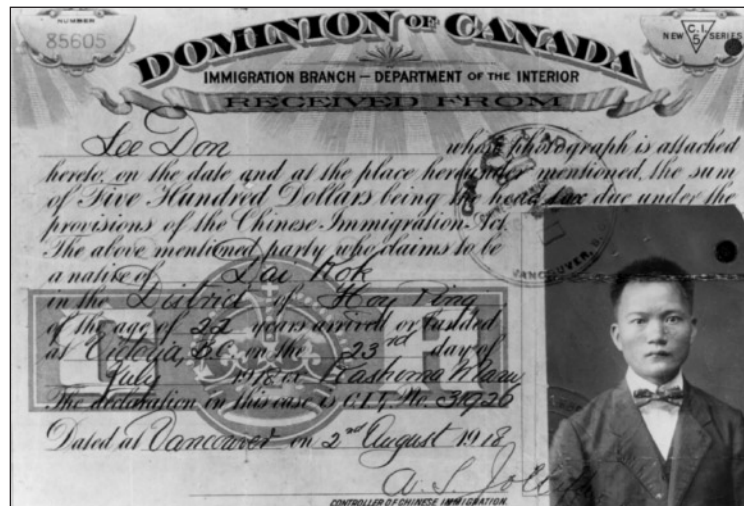 NUMBER
85605
DOMINION OF CANADA
NEW C.I. 5 SERIES
IMMIGRATION BRANCH — DEPARTMENT OF THE INTERIOR
RECEIVED FROM
Lee Don whose photograph is attached
hereto, on the date and at the place hereunder mentioned, the sum
of Five Hundred Dollars being the head tax due under the
provisions of the Chinese Immigration Act.
The above mentioned party who claims to be
a native of Dai Kok
in the District of Hoy Ping
of the age of 22 years arrived or landed
at Victoria, B.C. on the 23rd day of
July 1918 ex Kashima Maru
The declaration in this case is C.I.4. No.
Dated at Vancouver on 2nd August 1918
A. L.
CONTROLLER OF CHINESE IMMIGRATION.
VANCOUVER, B.C.